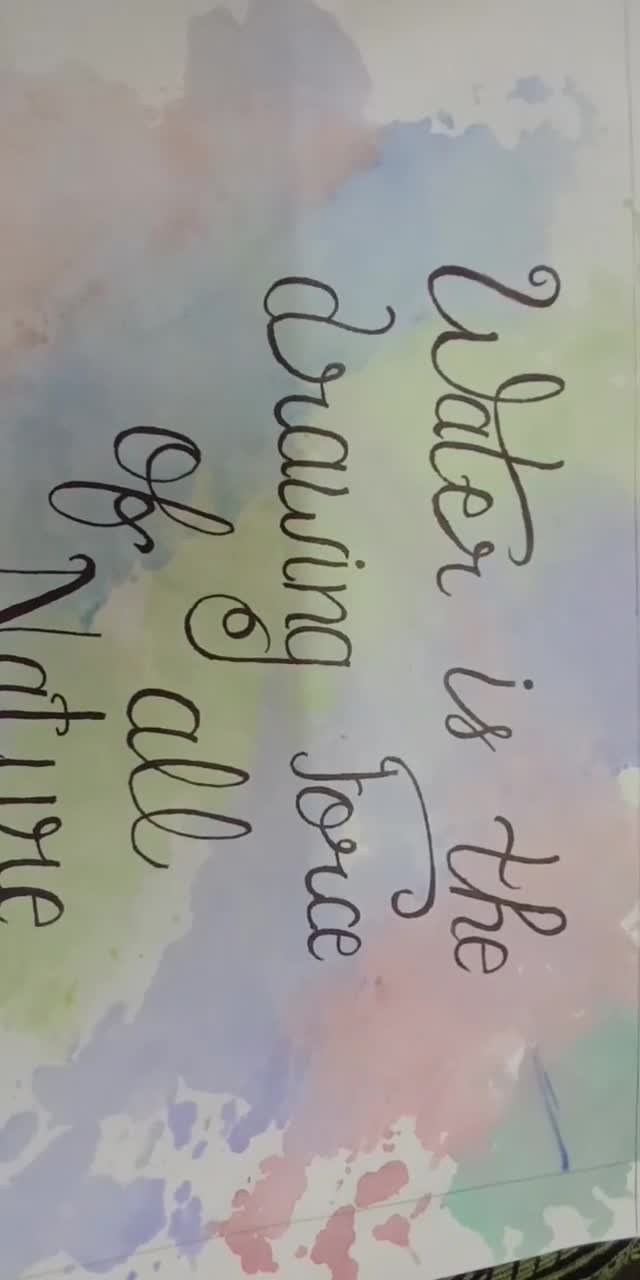 Water is the
drawing force
of all
Nature